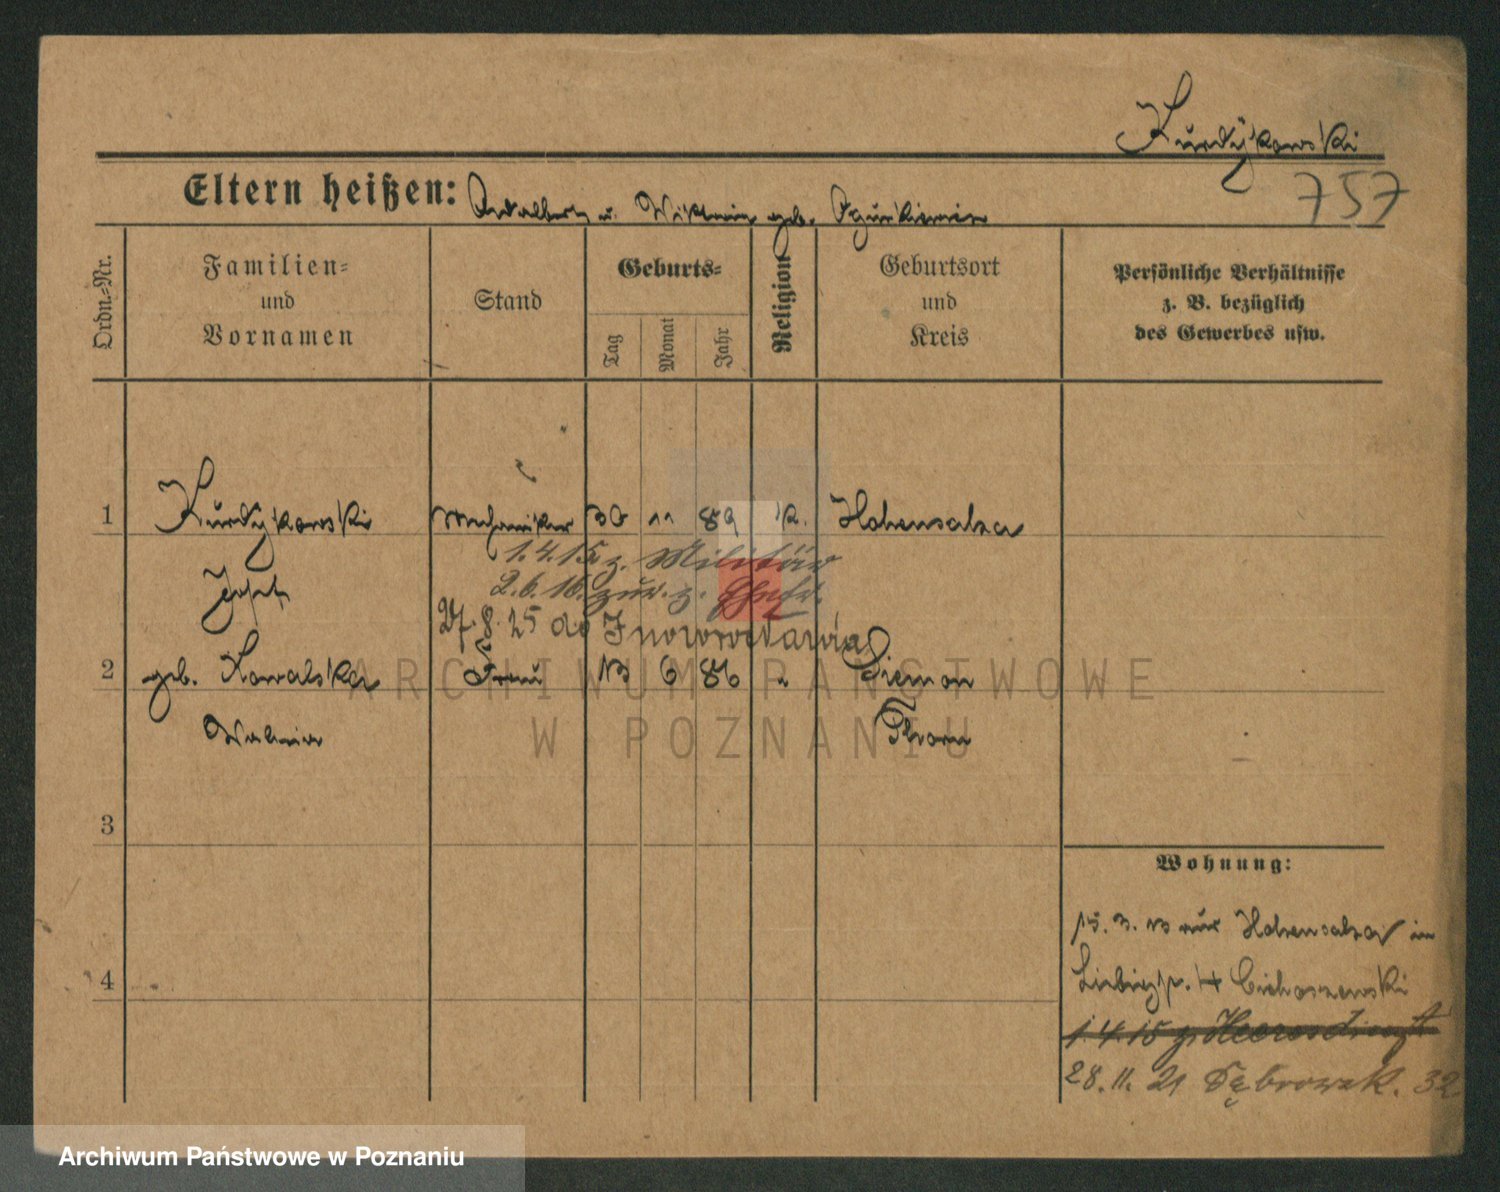 Kurdykowski
Eltern heißen: Adalbert u. Viktoria geb.
757
Ordn.-Nr.
Familien-
und
Vornamen
Stand
Geburts-
Tag
Monat
Jahr
Religion
Geburtsort
und
Kreis
Persönliche Verhältnisse
z. B. bezüglich
des Gewerbes usw.
1 Kurdykowski Mechaniker 30 11 89 k. Hohensalza
1.4.15 z. Militär
2.6.16. zur. z.
Josef
8. 25 do Inowrocławia
2 geb. Kowalska Frau 13 6 86 " Siemon
Thorn
3
Wohnung:
15. 3. 13 aus Hohensalza in
4
1.4.15 z. Heeresdienst
28. 11. 21 Dąbrowsk. 32
ARCHIWUM PAŃSTWOWE
W POZNANIU
Archiwum Państwowe w Poznaniu